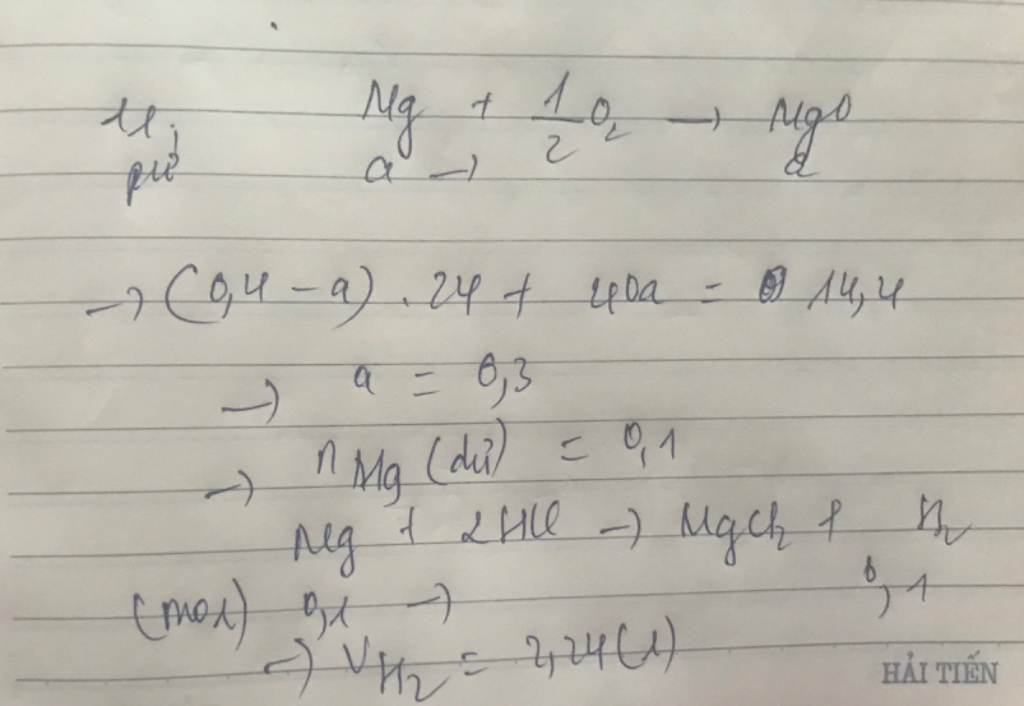 Mg + 1/2 O₂ → MgO
pư a → a
→ (0,4 - a) . 24 + 40a = 14,4
→ a = 0,3
→ nMg (dư) = 0,1
Mg + 2HCl → MgCl₂ + H₂
(mol) 0,1 → 0,1
→ VH₂ = 2,24 (l)
HẢI TIẾN